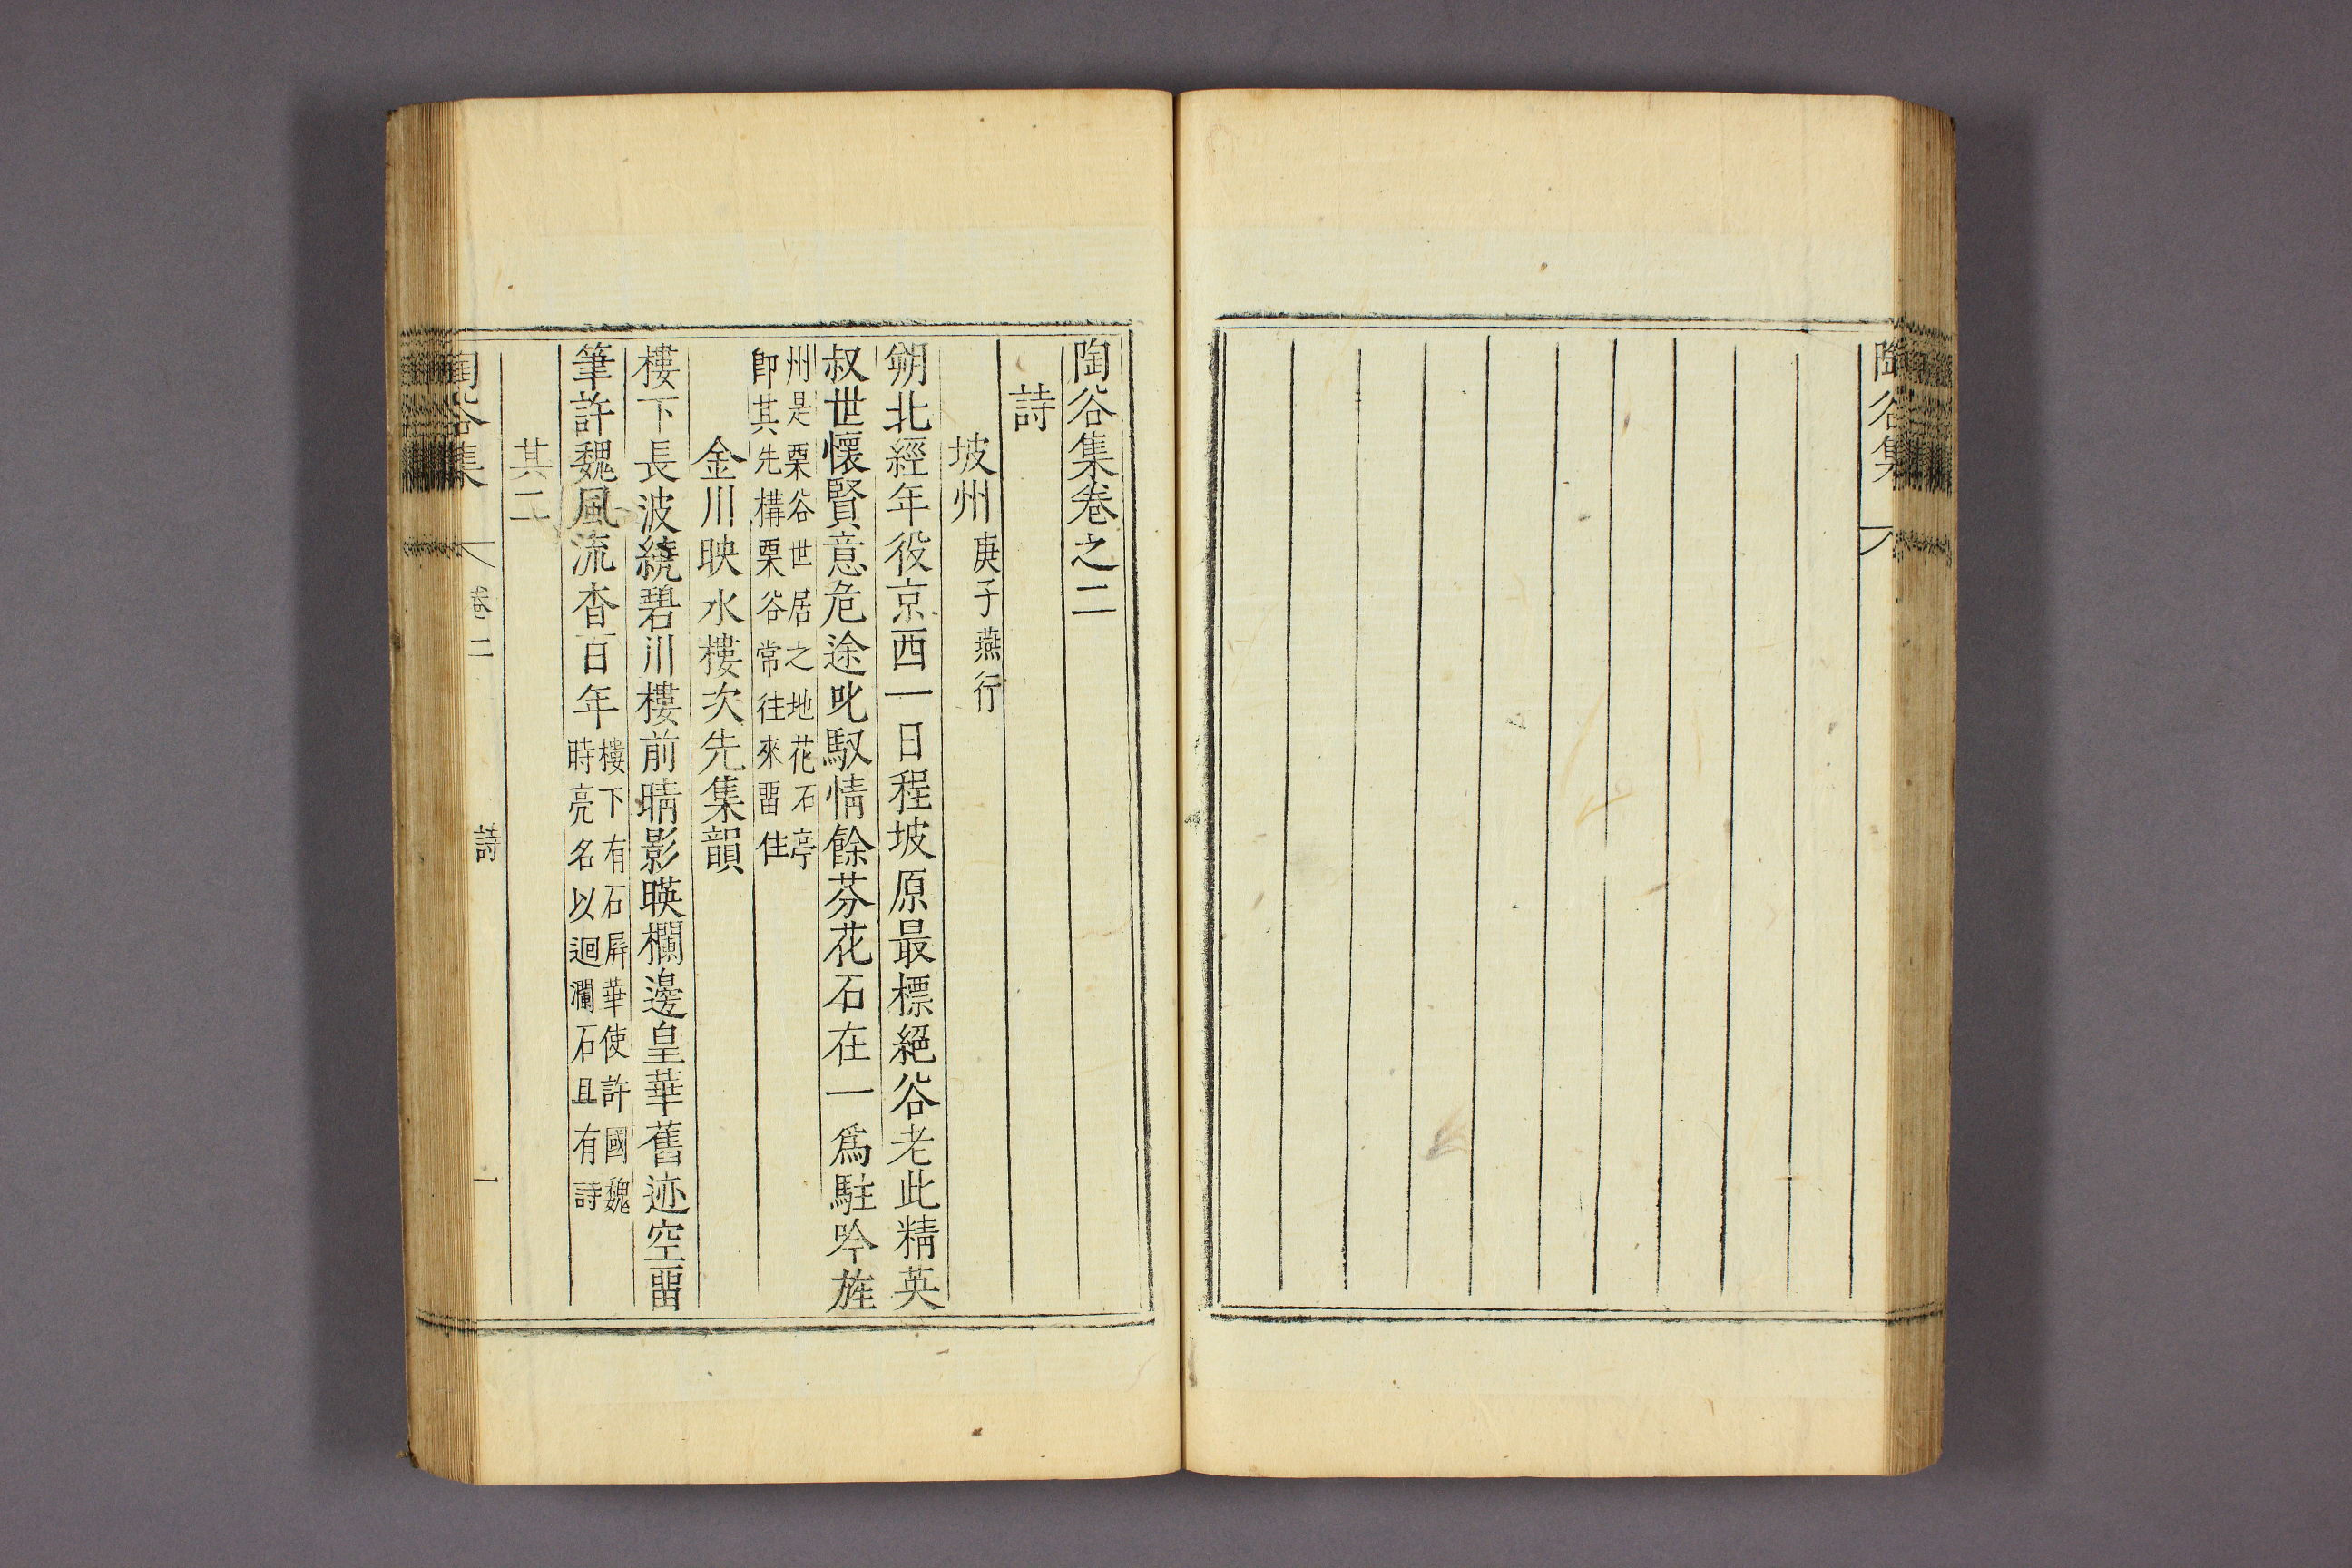 陶谷集
陶谷集卷之二
詩
坡州 庚子燕行
朔北經年役京西一日程坡原最標絕谷老此精英
叔世懷賢意危途叱馭情餘芬花石在一爲駐吟旌
州是栗谷世居之地花石亭
卽其先構栗谷常往來畱住
金川映水樓次先集韻
樓下長波繞碧川樓前晴影暎欄邊皇華舊迹空畱
筆許魏風流杳百年 樓下有石屛華使許國魏
時亮名以迴瀾石且有詩
其二
陶谷集 卷二 詩 一